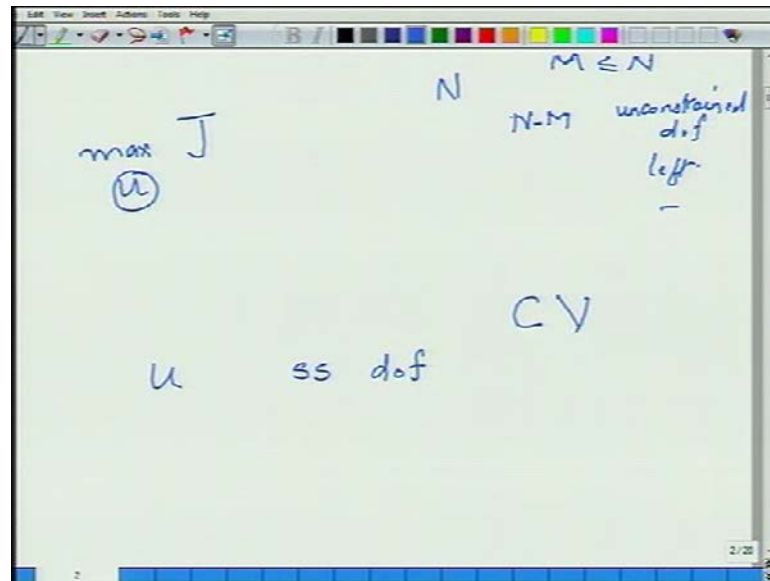 Edit View Insert Actions Tools Help
B I
M ≤ N
N
N-M unconstrained
dof
left
max J
u
CV
u ss dof
2/20
2